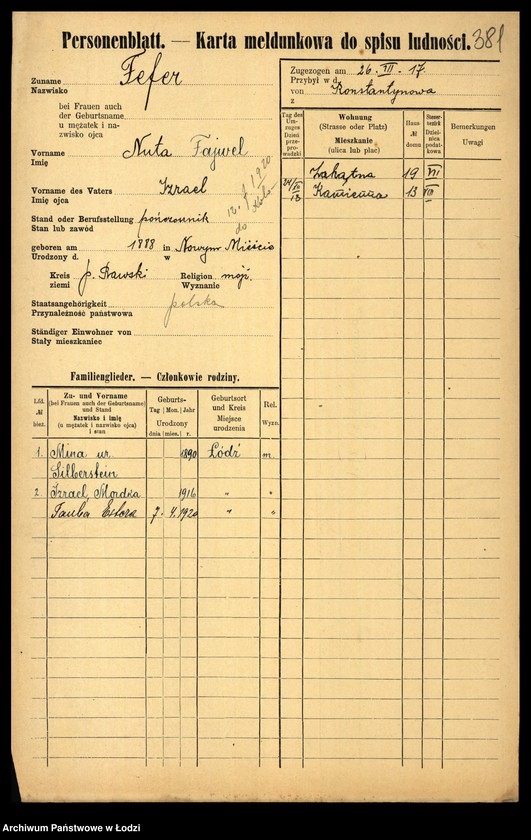 Personenblatt. — Karta meldunkowa do spisu ludności.
381
Zuname
Nazwisko
Fefer
bei Frauen auch
der Geburtsname
u mężatek i na-
zwisko ojca
Vorname
Imię
Nuta Fajwel
Vorname des Vaters
Imię ojca
Izrael
Stand oder Berufsstellung
Stan lub zawód
pończosznik
geboren am 1888 in Nowym Mieście
Urodzony d. w
Kreis p. Rawski Religion mojż.
ziemi Wyznanie
Staatsangehörigkeit
Przynależność państwowa
polska
Ständiger Einwohner von
Stały mieszkaniec
Zugezogen am 26. VII. 17.
Przybył w d.
von Konstantynowa
z
Tag des Um-zuges
Dzień prze-prowadzki
Wohnung
(Strasse oder Platz)
Mieszkanie
(ulica lub plac)
Haus
№
domu
Steuer-bezirk
Dziel-nica podat-kowa
Bemerkungen
Uwagi
Zakątna 19 VII
Kamienna 13 VIII
Familienglieder. — Członkowie rodziny.
Lfd.
№
bież.
Zu- und Vorname
(bei Frauen auch der Geburtsname)
und Stand
Nazwisko i imię
(u mężatek i nazwisko ojca)
i stan
Geburts-
Tag Mon. Jahr
Urodzony
dnia mies. r.
Geburtsort
und Kreis
Miejsce
urodzenia
Rel.
Wyzn.
1. Mina ur. 1890 Łódź m.
Silberstein
2. Izrael Mordka 1916 " "
Tauba Estera 7. 4. 1920 " "
Archiwum Państwowe w Łodzi